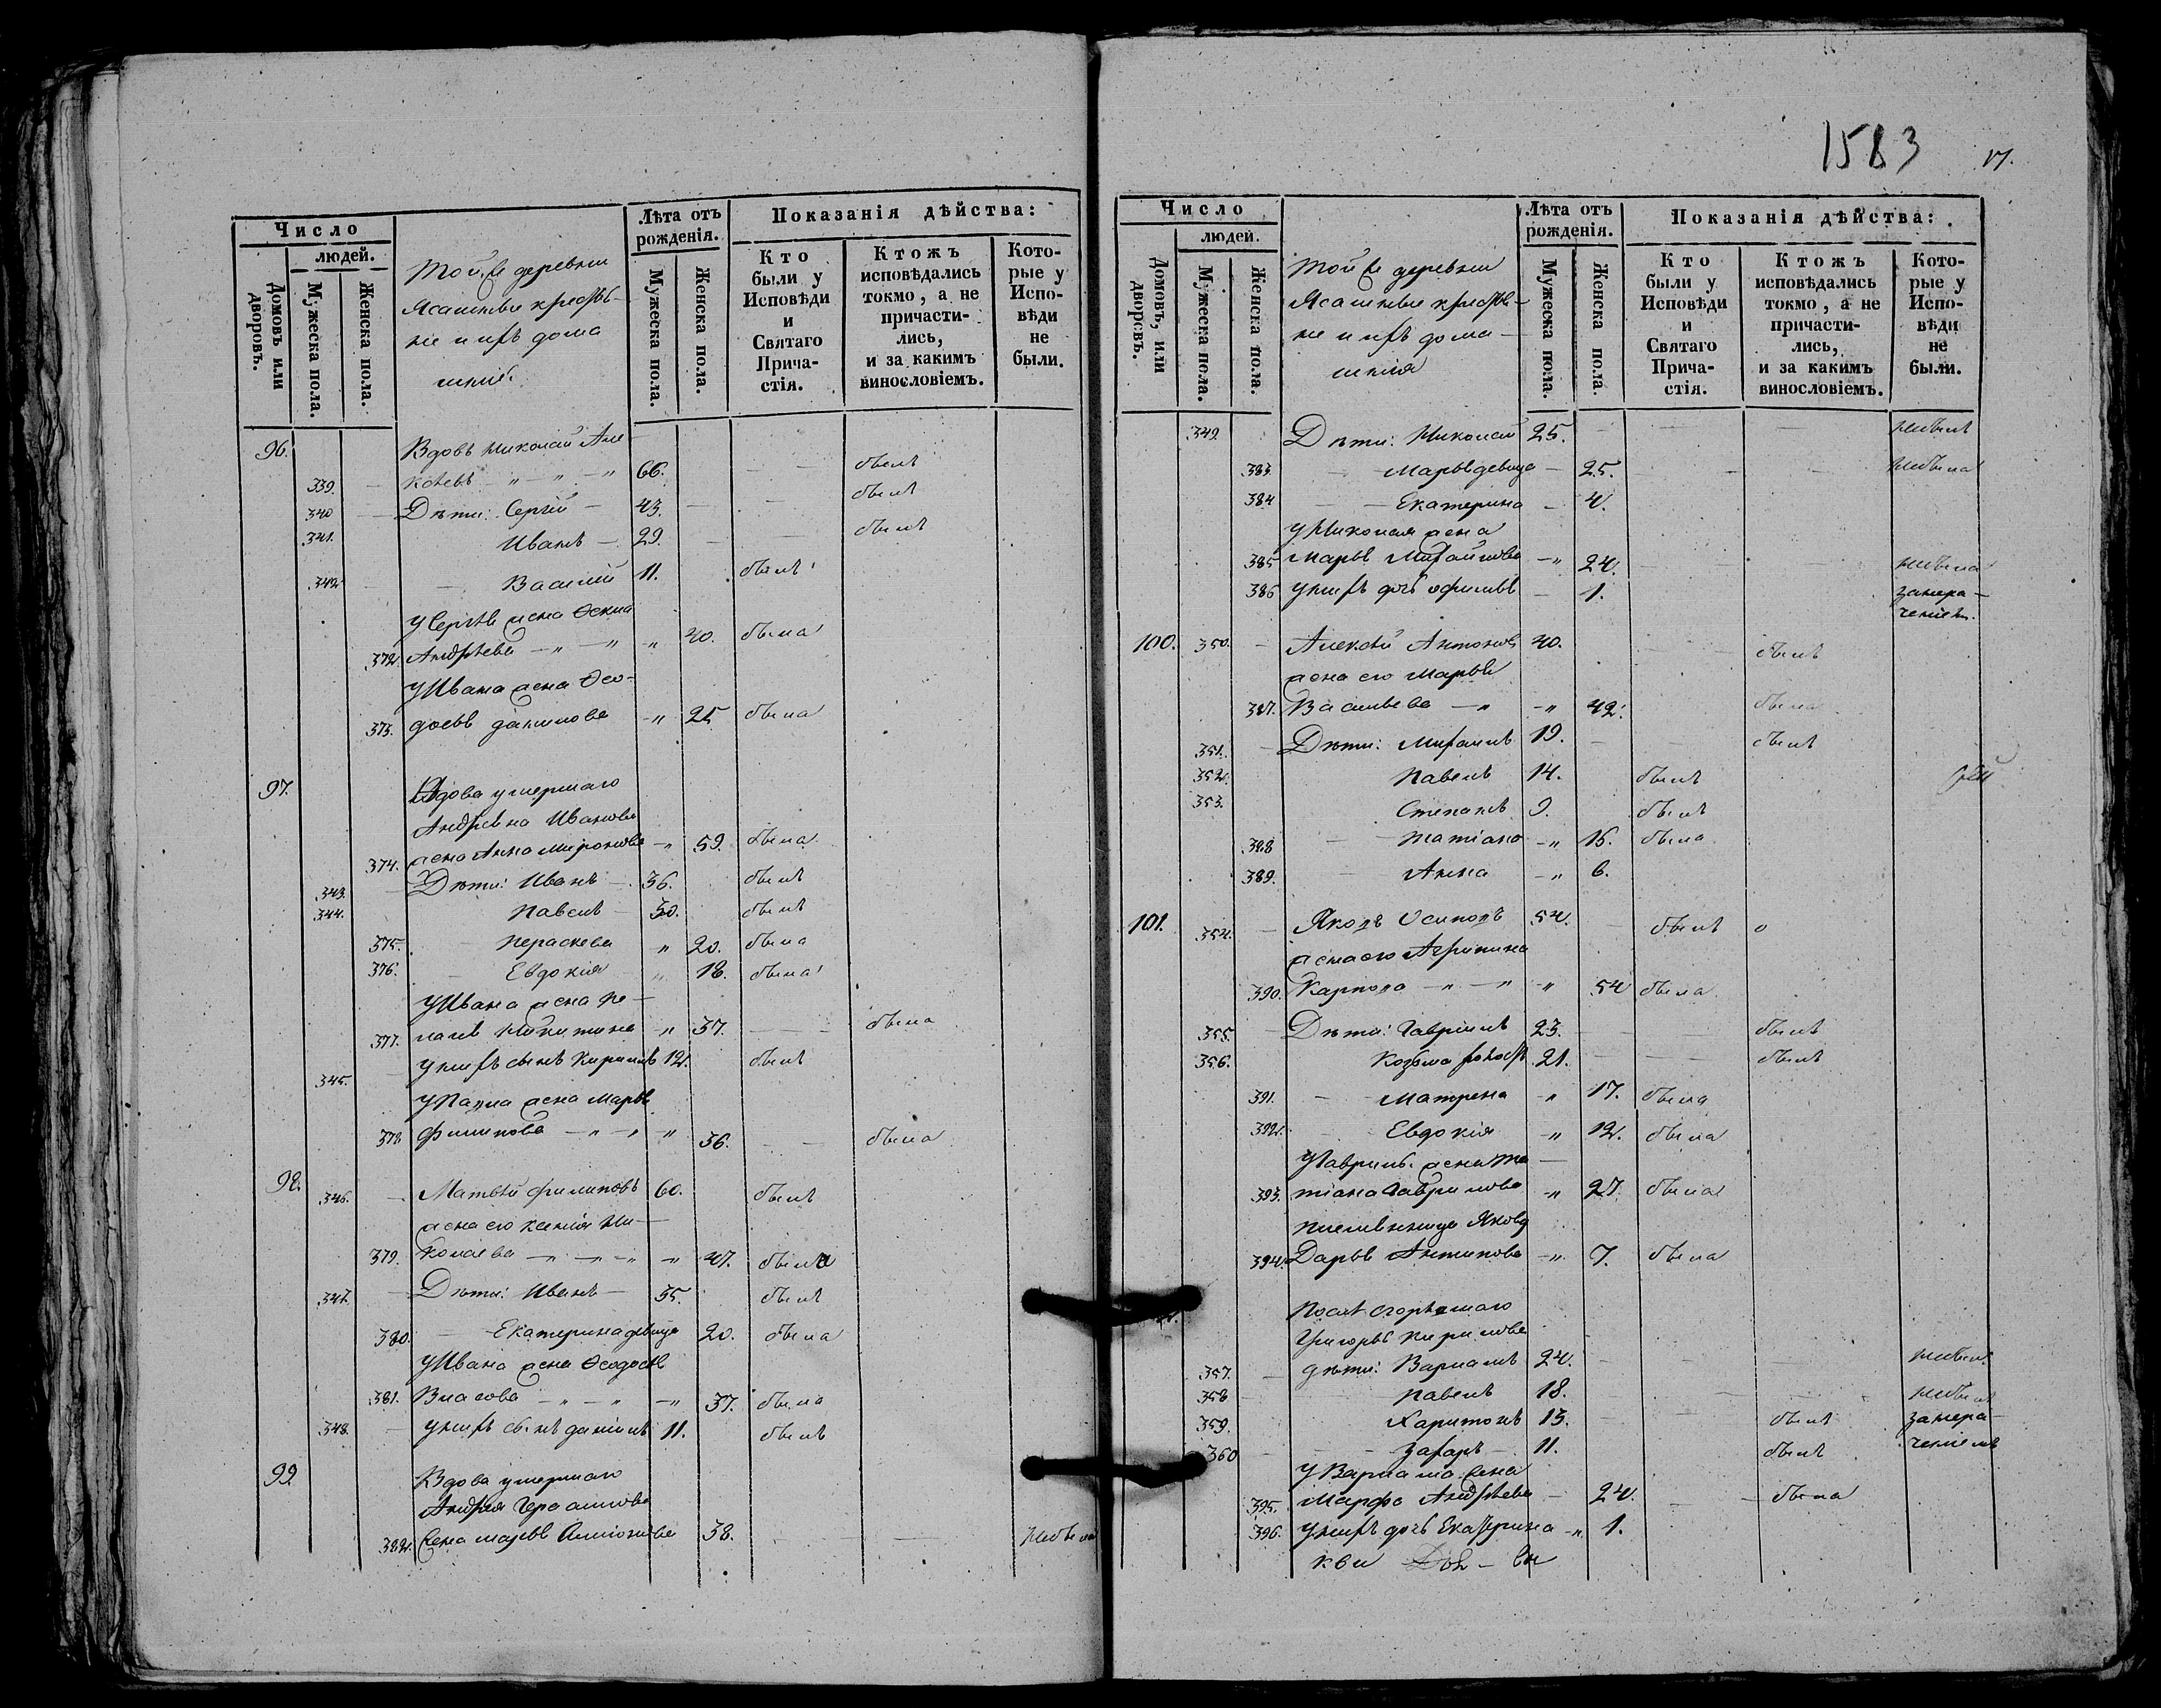 Число
людей.
Домовъ или дворовъ.
Мужеска пола.
Женска пола.
Той же деревни
Ясашные крестья-
не и ихъ дома
шніе.
Лѣта отъ рожденія.
Мужеска пола.
Женска пола.
Показанія дѣйства:
Кто были у Исповѣди и Святаго Прича-стія.
Ктожъ исповѣдались токмо, а не причасти-лись, и за какимъ винословіемъ.
Кото-рые у Испо-вѣди не были.
96. Вдовъ Николай Але
339. ксѣевъ 66. былъ
340 Дѣти: Сергій 43. былъ
341. Иванъ 29. былъ
342. Василій 11. былъ
У Сергѣя жена
372. Андрѣева 40. была
У Ивана жена Ѳео-
373. досья Данилова 25 была
97. Вдова умершаго
Андреяна Иванова
374. жена Анна Миронова 59. была
343. Дѣти: Иванъ 36. былъ
344. Павелъ 30. былъ
375. Пераскева 20. была
376. Евдокія 18. была
У Ивана жена Пе-
377. лагѣя Никитина 37. была
345. У нихъ сынъ Кирилъ 12. былъ
У Павла жена Марья
378 Филипова 36. была
98. 346. Матвѣй Филиповъ 60. былъ
жена его Ксенія Ни-
379. колаева 47. была
347. Дѣти: Иванъ 35. былъ
380. Екатерина девица 20. была
У Ивана жена Ѳеодосья
381. Власова 37. была
348. У нихъ сынъ Даніилъ 11. былъ
99. Вдова умершаго
Андрея Герасимова
382. жена Марья 38. небыла
1583
17.
Число
людей.
Домовъ, или дворовъ.
Мужеска пола.
Женска пола.
Той же деревни
Ясашные крестья-
не и ихъ дома-
шнія
Лѣта отъ рожденія.
Мужеска пола.
Женска пола.
Показанія дѣйства:
Кто были у Исповѣди и Святаго Прича-стія.
Ктожъ исповѣдались токмо, а не причасти-лись, и за какимъ винословіемъ.
Кото-рые у Испо-вѣди не были.
349. Дѣти: Николай 25. небылъ
383. Марья девица 25. небыла
384 Екатерина 4.
У Николая жена
385 Марья Михайлова 24. небыла
386 У нихъ дочь 1. занера-
ченіем.
100. 350. Алексѣй Антоновъ 40. былъ
жена его Марья
387. Васильева 42. была
351. Дѣти: Михаилъ 19. былъ
352. Павелъ 14. былъ
353. Степанъ 9. былъ
388 Татіана 16. была
389. Анна 6.
101. 354. Яковъ Осиповъ 54. былъ
жена его Агрипина
390. Карпова 54 была
355. Дѣти: Гавріилъ 23. былъ
356. Козьма холост 21. былъ
391. Матрена 17. была
392. Евдокія 12. была
У Гавріила жена Та-
393. тіана Гаврилова 27. была
племянница Якова
394. Дарья Антипова 7. была
После сгорѣвшаго
Григорья Кирилова
357. дѣти: Варламъ 24. небылъ
358 Павелъ 18. небылъ
359. Харитонъ 13. былъ занера-
360 Захаръ 11. былъ ченіемъ
У Варлама жена
395. Марфа Андрѣева 24. была
396. У нихъ дочь Екатерина 1.